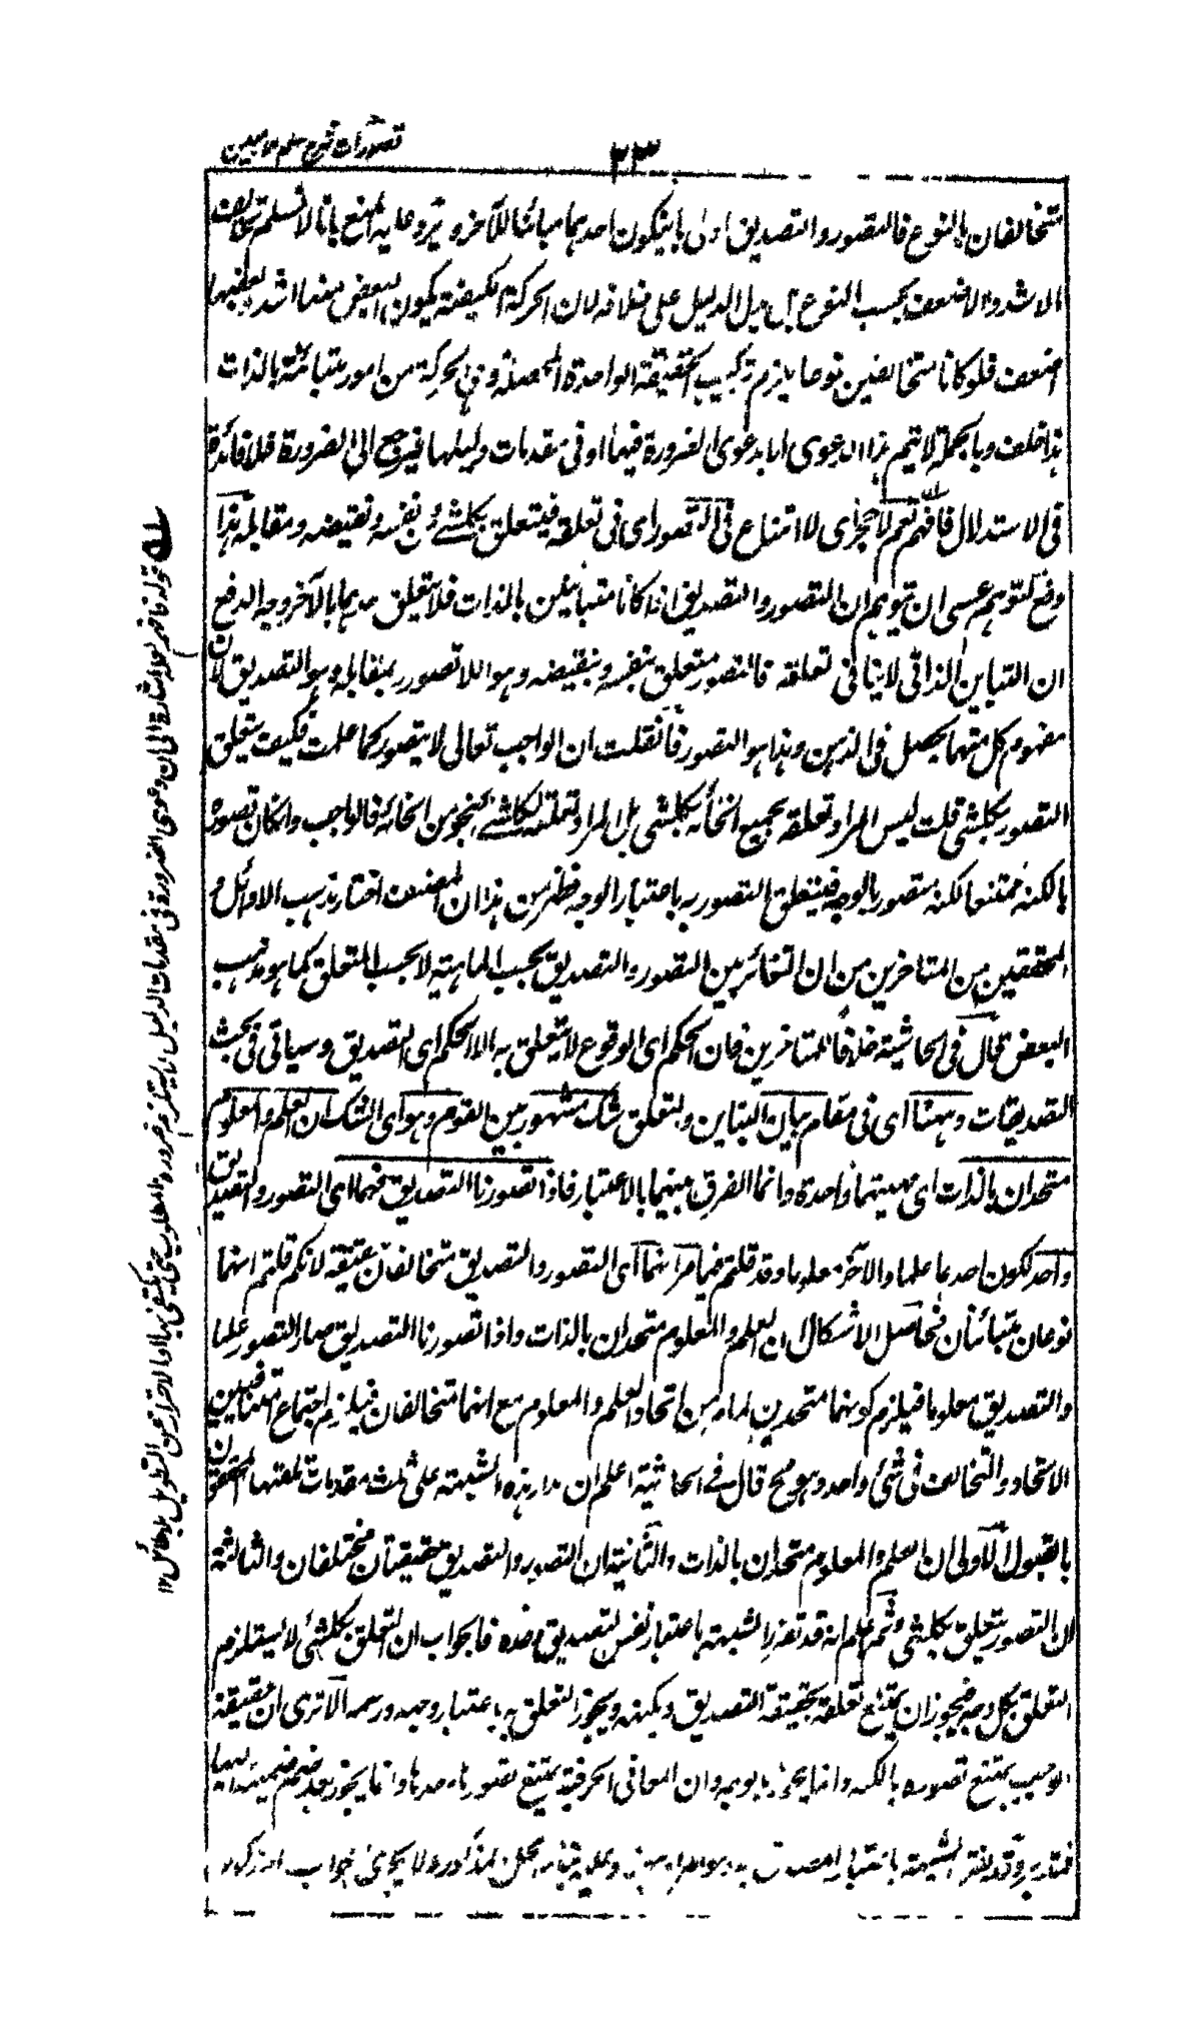 تصورات شرح سلم ملا مبین
٢٣
متخالفان بالنوع فالتصور والتصدیق اولی بان یکون احدهما مبائنا للآخر و یرد علیه المنع بانا لا نسلم تخالف
الاشد والاضعف بحسب النوع بل الدلیل علی خلافه لان الحرکة الکیفیة یکون البعض منها اشد وبعضها
اضعف فلو کانا متخالفین نوعا یلزم ترکیب الحقیقة الواحدة المحصلة وهی الحرکة من امور متبائنة بالذات
هذا خلف وبالجملة لا یتم هذا الدعوی الا بدعوی الضرورة فیها او فی مقدمات دلیلها فیرجع الی الضرورة فلا فائدة
فی الاستدلال فافهم نعم لا حجر ای لا امتناع فی التصور ای فی تعلقه فیتعلق بکل شئ و نفسه ونقیضه ومقابله هذا
دفع لتوهم عسی ان یتوهم ان التصور والتصدیق اذا کانا متبائنین بالذات فلا یتعلق احدهما بالآخر وجه الدفع
ان التباین الذاتی لا ینافی تعلقه فالتصور متعلق بنفسه وبنقیضه وهو اللا تصور بمقابله وهو التصدیق لان
مفهوم کل منهما یحصل فی الذهن وهذا هو التصور فان قلت ان الواجب تعالی لا یتصور کما علمت فکیف یتعلق
التصور بکل شئ قلت لیس المراد تعلقه بجمیع انحائه بکل شئ بل المراد تعلقه بکل شئ بنحو من انحائه فالواجب وان کان تصوره
بالکنه ممتنعا لکنه متصور بالوجه فیتعلق التصور به باعتبار الوجه فظهر من هذا ان المصنف اختار مذهب الاوائل و
المحققین من المتاخرین من ان التغائر بین التصور والتصدیق بحسب الماهیة لا بحسب المتعلق کما هو مذهب
البعض قال فی الحاشیة خلافا للمتاخرین فان الحکم ای الوقوع لا یتعلق به الا الحکم ای التصدیق وسیاتی فی بحث
التصدیقات وههنا ای فی مقام بیان التباین والتعلق شک مشهور بین القوم وهو ای الشک ان العلم والمعلوم
متحدان بالذات ای مهیتهما واحدة وانما الفرق بینهما بالاعتبار فاذا تصورنا التصدیق فهما ای التصور والتصدیق
واحد لکون احدهما علما والآخر معلوما وقد قلتم فیما مر انهما ای التصور والتصدیق متخالفان حقیقة لانکم قلتم انهما
نوعان متبائنان فحاصل الاشکال ان العلم والمعلوم متحدان بالذات واذا تصورنا التصدیق صار التصور علما
والتصدیق معلوما فیلزم کونهما متحدین لما مر من اتحاد العلم والمعلوم مع انهما متخالفان فیلزم اجتماع المتنافیین
الاتحاد والتخالف فی شئ واحد وهو مح قال فی الحاشیة اعلم ان مدار هذه الشبهة علی ثلث مقدمات تلقتها المحققون
بالقبول الاولی ان العلم والمعلوم متحدان بالذات والثانیة ان التصور والتصدیق حقیقتان مختلفان والثالثة
ان التصور یتعلق بکل شئ ثم اعلم انه قد تقرر الشبهة باعتبار نفس التصدیق وحده فالجواب ان التعلق بکل شئ لا یستلزم
التعلق بکل وجه فیجوز ان یمتنع تعلقه بحقیقة التصدیق وبکنهه ویجوز التعلق به باعتبار وجهه ورسمه الا تری ان حقیقة
الواجب یمتنع تصوره بالکنه وانما یجوز بالوجه وان المعانی الحرفیة یمتنع تصورها وحدها وانما یجوز بعد ضم ضمیمة الیها
فتدبر وقد تقرر الشبهة باعتبار المصدق به
قوله فافهم لعله اشارة الی ان دعوی الضرورة فی مقدمات الدلیل لا یستلزم ضرورة المطلوب حتی یکتفی بها اولا احترازا عن التطویل بلا طائل ١٢